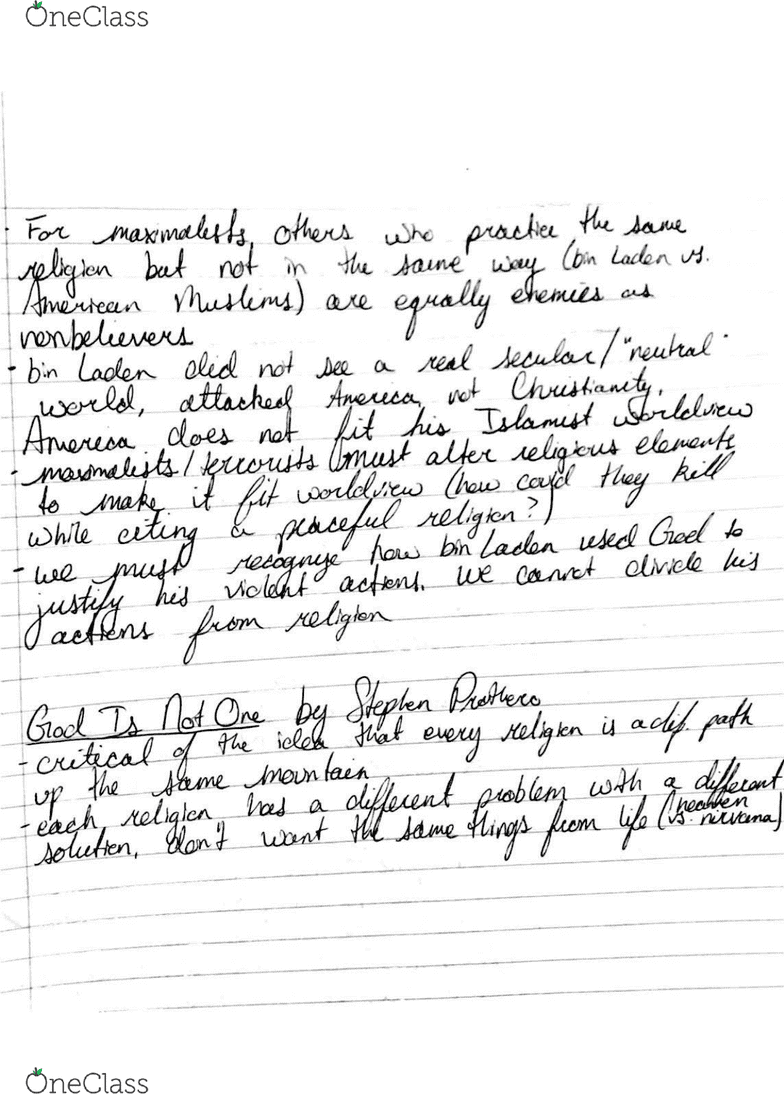 OneClass
· For maximalists, others who practice the same
religion but not in the same way (bin Laden vs.
American Muslims) are equally enemies as
nonbelievers
- bin Laden did not see a real secular/"neutral"
world, attacked America, not Christianity.
America does not fit his Islamist worldview
- maximalists/terrorists must alter religious elements
to make it fit worldview (how could they kill
while citing a peaceful religion?)
- we must recognize how bin Laden used God to
justify his violent actions. We cannot divide his
actions from religion
God Is Not One by Stephen Prothero
- critical of the idea that every religion is a dif. path
up the same mountain
- each religion has a different problem with a different
solution, don't want the same things from life (heaven
vs. nirvana)
OneClass